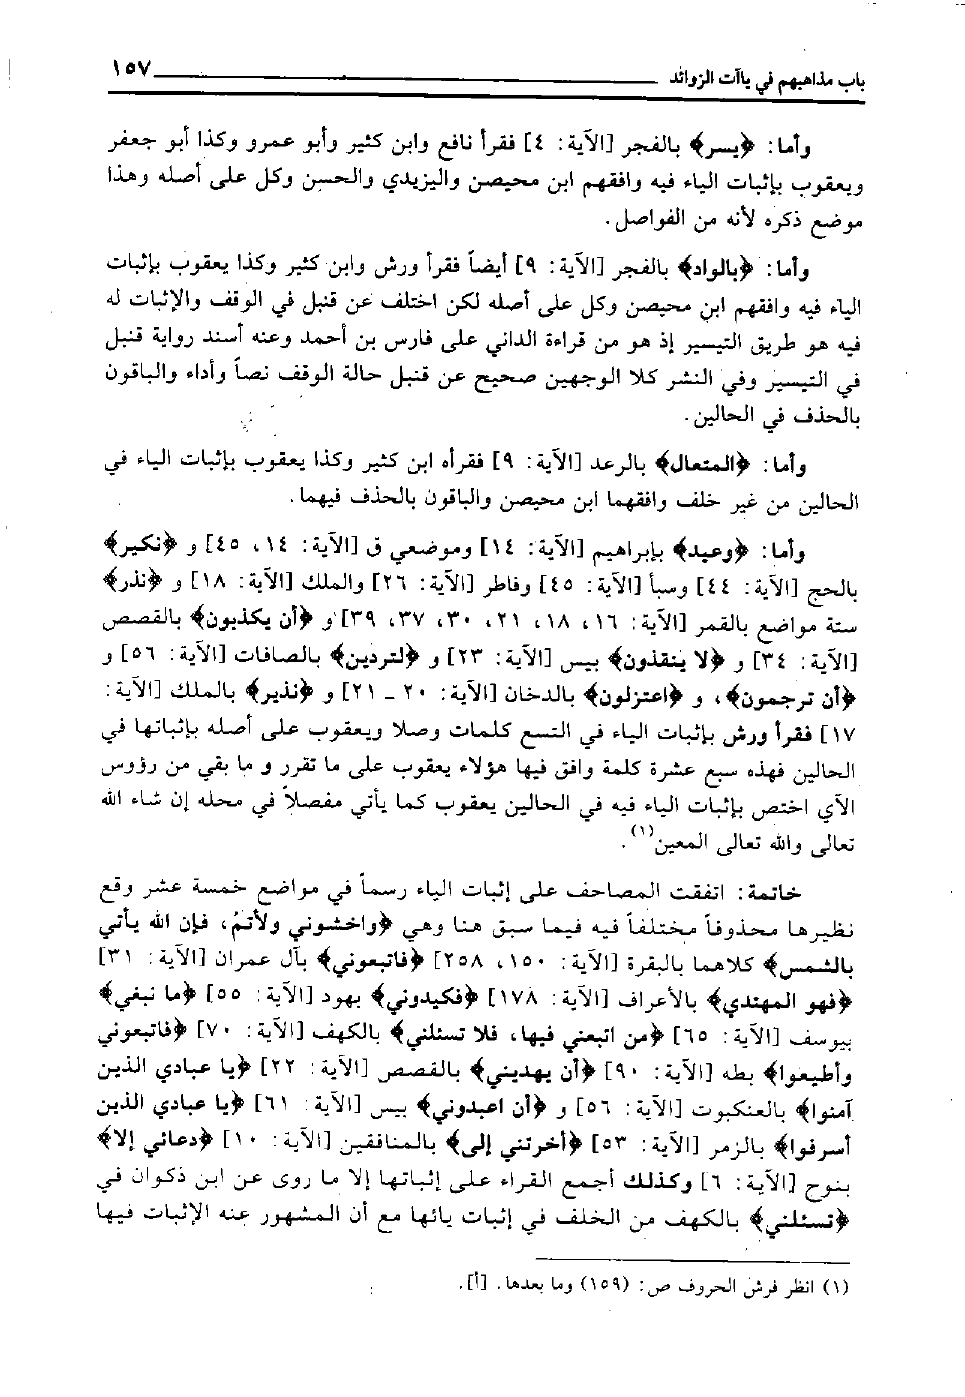 باب مذاهبهم في ياآت الزوائد ١٥٧
وأما: ﴿يسر﴾ بالفجر [الآية: ٤] فقرأ نافع وابن كثير وأبو عمرو وكذا أبو جعفر
ويعقوب بإثبات الياء فيه وافقهم ابن محيصن واليزيدي والحسن وكل على أصله وهذا
موضع ذكره لأنه من الفواصل.
وأما: ﴿بالواد﴾ بالفجر [الآية: ٩] أيضاً فقرأ ورش وابن كثير وكذا يعقوب بإثبات
الياء فيه وافقهم ابن محيصن وكل على أصله لكن اختلف عن قنبل في الوقف والإثبات له
فيه هو طريق التيسير إذ هو من قراءة الداني على فارس بن أحمد وعنه أسند رواية قنبل
في التيسير وفي النشر كلا الوجهين صحيح عن قنبل حالة الوقف نصاً وأداء والباقون
بالحذف في الحالين.
وأما: ﴿المتعال﴾ بالرعد [الآية: ٩] فقرأه ابن كثير وكذا يعقوب بإثبات الياء في
الحالين من غير خلف وافقهما ابن محيصن والباقون بالحذف فيهما.
وأما: ﴿وعيد﴾ بإبراهيم [الآية: ١٤] وموضعي ق [الآية: ١٤، ٤٥] و ﴿نكير﴾
بالحج [الآية: ٤٤] وسبأ [الآية: ٤٥] وفاطر [الآية: ٢٦] والملك [الآية: ١٨] و ﴿نذر﴾
ستة مواضع بالقمر [الآية: ١٦، ١٨، ٢١، ٣٠، ٣٧، ٣٩] و ﴿أن يكذبون﴾ بالقصص
[الآية: ٣٤] و ﴿لا ينقذون﴾ بيس [الآية: ٢٣] و ﴿لتردين﴾ بالصافات [الآية: ٥٦] و
﴿أن ترجمون﴾، و ﴿اعتزلون﴾ بالدخان [الآية: ٢٠ ـ ٢١] و ﴿نذير﴾ بالملك [الآية:
١٧] فقرأ ورش بإثبات الياء في التسع كلمات وصلا ويعقوب على أصله بإثباتها في
الحالين فهذه سبع عشرة كلمة وافق فيها هؤلاء يعقوب على ما تقرر و ما بقي من رؤوس
الآي اختص بإثبات الياء فيه في الحالين يعقوب كما يأتي مفصلاً في محله إن شاء الله
تعالى والله تعالى المعين(١).
خاتمة: اتفقت المصاحف على إثبات الياء رسماً في مواضع خمسة عشر وقع
نظيرها محذوفاً مختلفاً فيه فيما سبق هنا وهي ﴿واخشوني ولأتم، فإن الله يأتي
بالشمس﴾ كلاهما بالبقرة [الآية: ١٥٠، ٢٥٨] ﴿فاتبعوني﴾ بآل عمران [الآية: ٣١]
﴿فهو المهتدي﴾ بالأعراف [الآية: ١٧٨] ﴿فكيدوني﴾ بهود [الآية: ٥٥] ﴿ما نبغي﴾
بيوسف [الآية: ٦٥] ﴿من اتبعني فيها، فلا تسئلني﴾ بالكهف [الآية: ٧٠] ﴿فاتبعوني
وأطيعوا﴾ بطه [الآية: ٩٠] ﴿أن يهديني﴾ بالقصص [الآية: ٢٢] ﴿يا عبادي الذين
آمنوا﴾ بالعنكبوت [الآية: ٥٦] و ﴿أن اعبدوني﴾ بيس [الآية: ٦١] ﴿يا عبادي الذين
أسرفوا﴾ بالزمر [الآية: ٥٣] ﴿أخرتني إلى﴾ بالمنافقين [الآية: ١٠] ﴿دعائي إلا﴾
بنوح [الآية: ٦] وكذلك أجمع القراء على إثباتها إلا ما روى عن ابن ذكوان في
﴿تسئلني﴾ بالكهف من الخلف في إثبات يائها مع أن المشهور عنه الإثبات فيها
(١) انظر فرش الحروف ص: (١٥٩) وما بعدها. [أ].